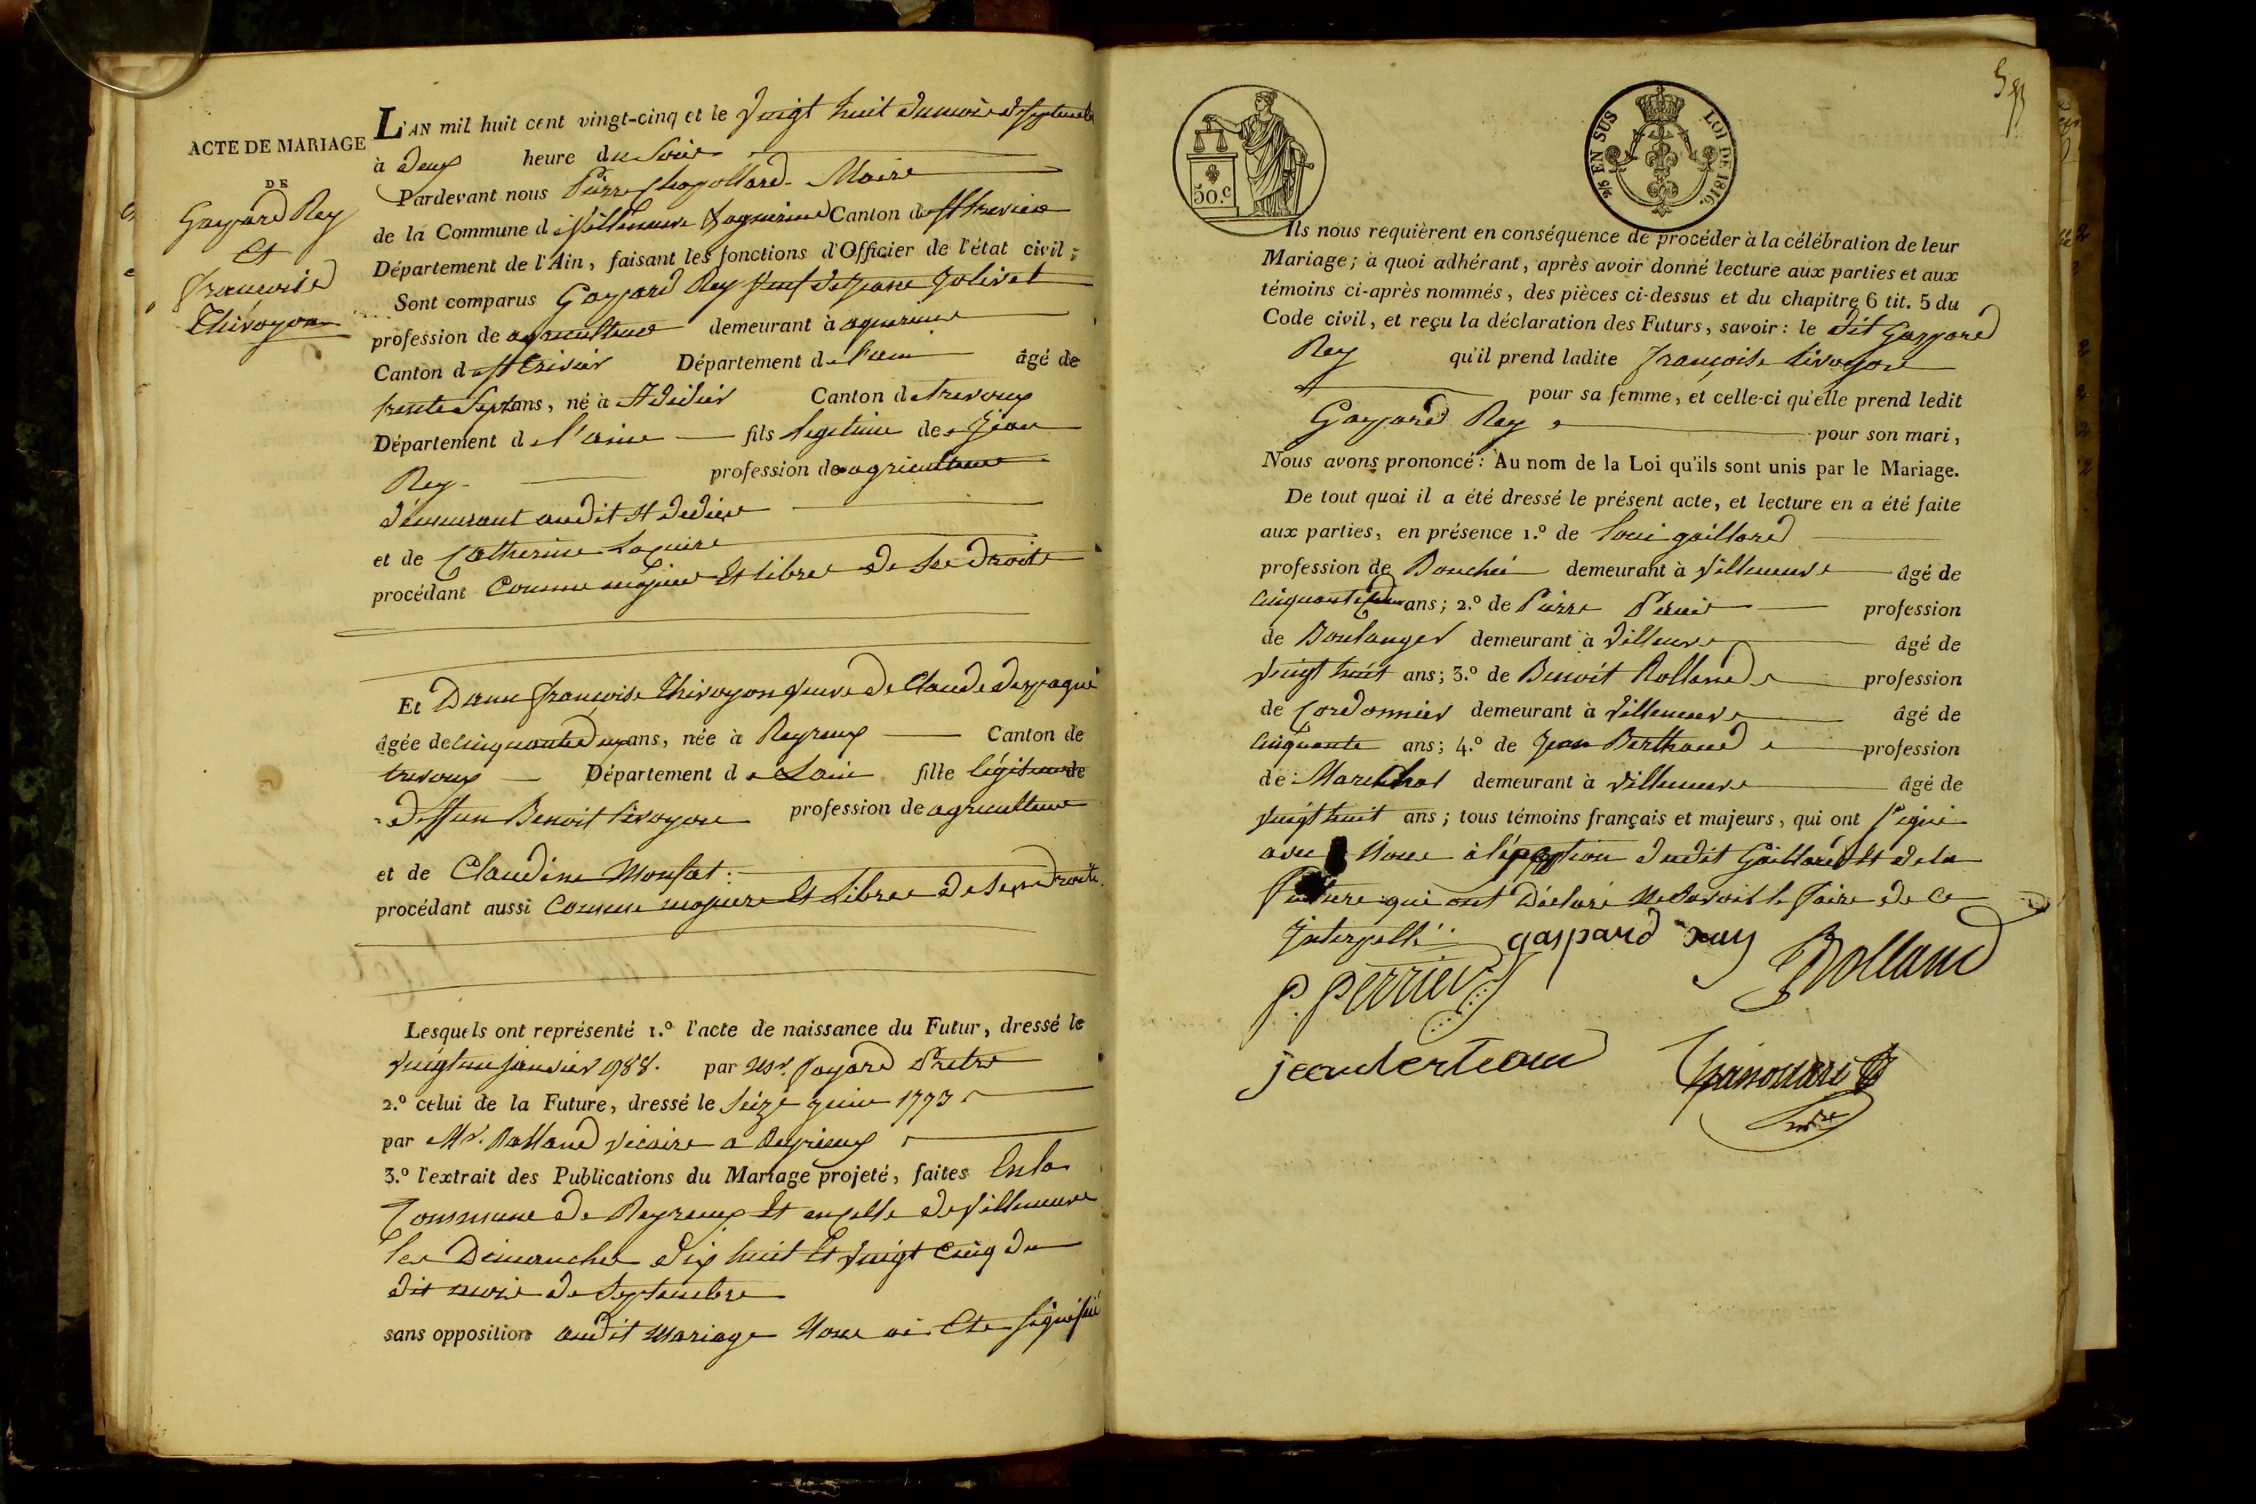 ACTE DE MARIAGE
DE
Gaspard Rey
Et
françoise
Thivoyon
L'AN mil huit cent vingt-cinq et le vingt huit du mois de septembre
à deux heure du soir
Pardevant nous Pierre Chapollard Maire
de la Commune de Villeneuve Canton de St trevier
Département de l'Ain, faisant les fonctions d'Officier de l'état civil;
Sont comparus Gaspard Rey veuf de jeane Jolivet
profession de agriculteur demeurant à
Canton de St trivier Département de l'ain âgé de
trente sept ans, né à St didier Canton de trevoux
Département de l'ain fils legitime de Jean
Rey profession de agriculteur
demeurant audit St didier
et de Catherine
procédant comme majeur et libre de se droits
Et Dame françoise Thivoyon veuve de Claude
âgée de cinquante deux ans, née à Reyreux Canton de
trevoux Département de Lain fille légitime de
deffun Benoit tivoyon profession de agriculteur
et de Claudine Monfat
procédant aussi comme majeure et libre de ses droits
Lesquels ont représenté 1.º l'acte de naissance du Futur, dressé le
vingt un janvier 1788. par Mr. Prêtre
2.º celui de la Future, dressé le seize 1773
par Mr. Rolland vicaire a Reyrieux
3.º l'extrait des Publications du Mariage projeté, faites En la
Commune de Reyreux et en celle de Villeneuve
les Dimanches dix huit et vingt cinq du
dit mois de septembre
sans opposition audit mariage Nous ai Ete signifié
50.c
2/5 EN SUS
LOI DE 1816.
Ils nous requièrent en conséquence de procéder à la célébration de leur
Mariage; à quoi adhérant, après avoir donné lecture aux parties et aux
témoins ci-après nommés, des pièces ci-dessus et du chapitre 6 tit. 5 du
Code civil, et reçu la déclaration des Futurs, savoir: le dit Gaspard
Rey qu'il prend ladite françoise tivoyon
pour sa femme, et celle-ci qu'elle prend ledit
Gaspard Rey pour son mari,
Nous avons prononcé: Au nom de la Loi qu'ils sont unis par le Mariage.
De tout quoi il a été dressé le présent acte, et lecture en a été faite
aux parties, en présence 1.º de Loui gaillard
profession de Bouché demeurant à Villeneuve âgé de
cinquante ans; 2.º de Pierre profession
de Boulanger demeurant à Villenuve âgé de
vingt huit ans; 3.º de Benoit Rolland profession
de Cordonnier demeurant à Villeneuve âgé de
cinquante ans; 4.º de Jean Berthaud profession
de Marechal demeurant à Villeneuve âgé de
vingt huit ans; tous témoins français et majeurs, qui ont signé
avec Nous à dudit Gaillard et de la
future qui ont déclaré ne savoir le faire de ce
Interpellé
gaspard rey
Rolland
P. perrier
jean berteau